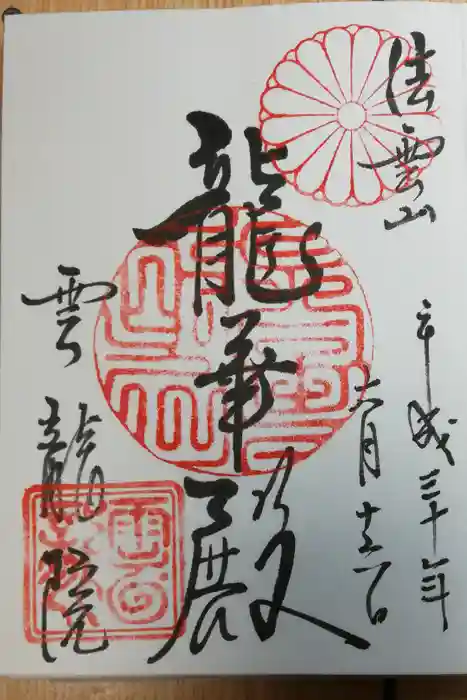 法雲山
平成三十年
六月十六日
龍華殿
雲龍院